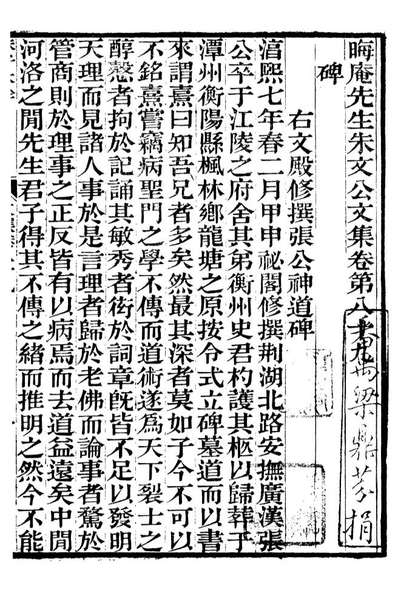 晦庵先生朱文公文集卷第八十九
番禺梁鼎芬捐
碑
右文殿修撰張公神道碑
淳熙七年春二月甲申祕閣修撰荆湖北路安撫廣漢張
公卒于江陵之府舍其弟衡州史君杓護其柩以歸葬于
潭州衡陽縣楓林鄉龍塘之原按令式立碑墓道而以書
來謂熹曰知吾兄者多矣然最其深者莫如子今不可以
不銘熹嘗竊病聖門之學不傳而道術遂爲天下裂士之
醇慤者拘於記誦其敏秀者衒於詞章旣皆不足以發明
天理而見諸人事於是言理者歸於老佛而論事者騖於
管商則於理事之正反皆有以病焉而去道益遠矣中閒
河洛之閒先生君子得其不傳之緒而推明之然今不能